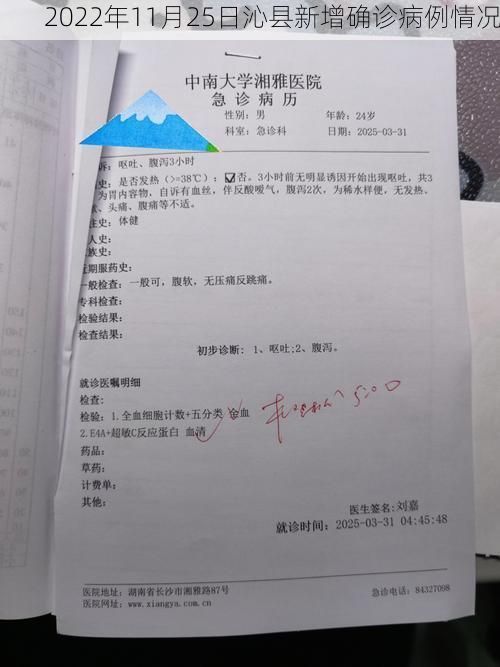 2022年11月25日沁县新增确诊病例情况
中南大学湘雅医院
急 诊 病 历
性别：男 年龄：24岁
科室：急诊科 日期：2025-03-31
诉：呕吐、腹泻3小时
史：是否发热（>=38℃）：☑否。3小时前无明显诱因开始出现呕吐，共3
为胃内容物，自诉有血丝，伴反酸嗳气，腹泻2次，为稀水样便，无发热、
、头痛、腹痛等不适。
往史：体健
人史：
族史：
近期服药史：
一般检查：一般可，腹软，无压痛反跳痛。
专科检查：
检验结果：
检查结果：
初步诊断： 1、呕吐;2、腹泻。
就诊医嘱明细
检查：
检验：1.全血细胞计数+五分类 全血
2.E4A+超敏C反应蛋白 血清
药品：
草药：
计费单：
其他：
医生签名:刘嘉
就诊时间：2025-03-31 04:45:48
医院地址：湖南省长沙市湘雅路87号 急诊电话：84327098
医院网址：www.xiangya.com.cn